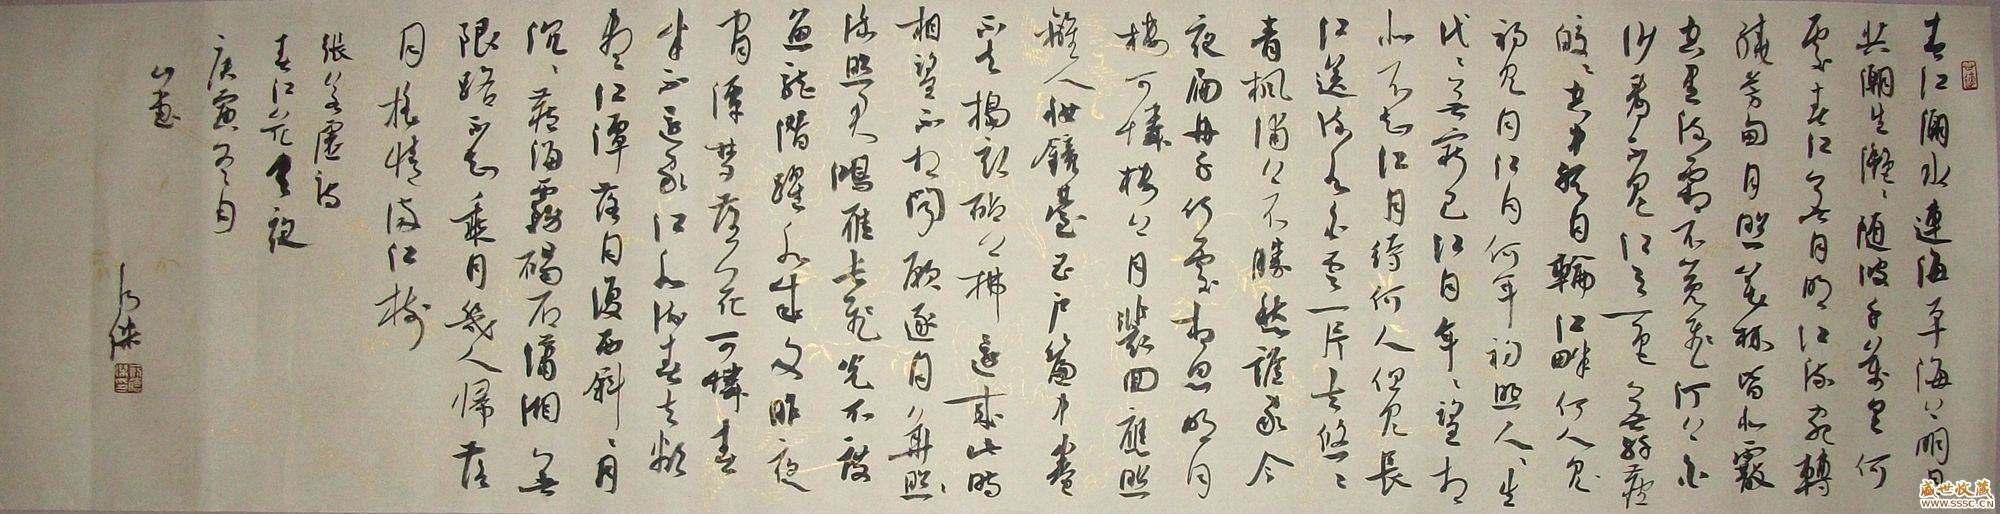 春江潮水連海平海上明月
共潮生灔灔随波千萬里何
處春江無月明江流宛轉
繞芳甸月照花林皆似霰
空里流霜不覺飛汀上白
沙看不見江天一色無纤塵
皎皎空中孤月輪江畔何人
初見月江月何年初照人人生
代代無窮已江月年年望相
似不知江月待何人但見長
江送流水白雲一片去悠悠
青楓浦上不勝愁誰家今
夜扁舟子何處相思明月
樓可憐樓上月裴回應照
離人妝鏡臺玉户簾中卷
不去搗衣砧上拂還來此時
相望不相聞願逐月華照
流照君鴻雁長飛光不度
魚龍潛躍水成文昨夜
閒潭夢落花可憐春
半不還家江水流春去欲
盡江潭落月復西斜斜月
沉沉藏海霧碣石瀟湘無
限路不知乘月幾人歸落
月搖情滿江樹
張若虛詩
春江花月夜
庚寅冬月
盛世收藏
WWW.SSSC.CN